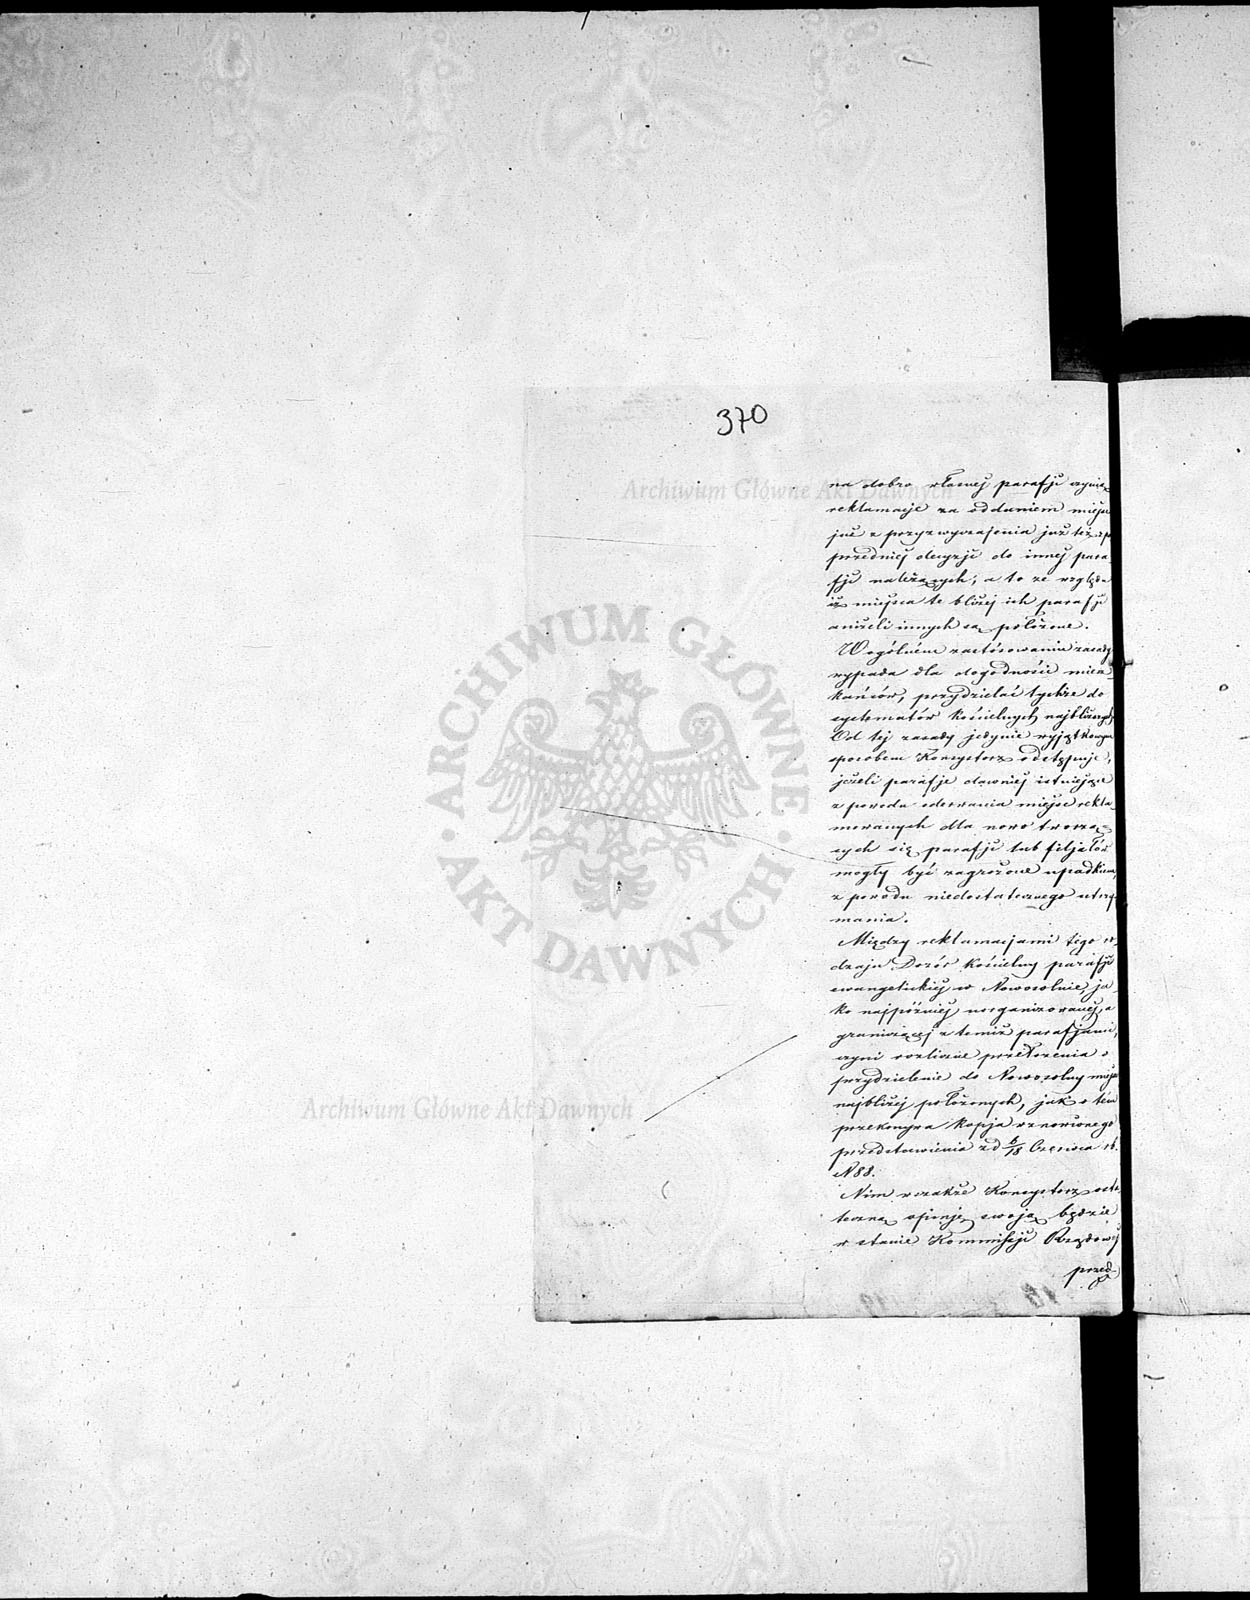 370
na dobro własnej parafji czynią
reklamacje za oddaniem miejsc
już z przyzwyczajenia już też z po
przedniej decyzji do innej para-
fji należących, a to ze względu
iż miejsca te bliżej ich parafji
aniżeli innych są położone.
W ogólném zastósowaniu zasady
wypada dla dogodności miesz-
kańców, przydzielać tychże do
systematów kościelnych najbliższych
Od tej zasady jedynie wyjątkowym
sposobem Konsystorz odstępuje,
jeżeli parafje dawniej istniejące
z powodu oderwania miejsc rekla-
mowanych dla nowo tworzą-
cych się parafji lub filjałów
mogły być zagrożone upadkiem,
z powodu niedostatecznego utrzy-
mania.
Między reklamacjami tego ro-
dzaju Dozór Kościelny parafji
ewangelickiej w Nowosolnie, ja-
ko najpóźniej uorganizowanej, a
graniczącej z temiż parafjami,
czyni rozliczne przełożenia o
przydzielenie do Nowosolny miejsc
najbliżej położonych, jak o tém
przekonywa kopja wznowionego
przedstawienia z d 6/18 Czerwca rb.
N 88.
Nim wszakże Konsystorz osta-
teczną opinję swoją będzie
w stanie Kommissji Rządowej
przed-
Archiwum Główne Akt Dawnych
ARCHIWUM GŁÓWNE
AKT DAWNYCH
Archiwum Główne Akt Dawnych